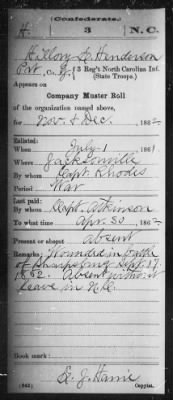 Confederate.
H 3 N.C.
Hillory D Henderson
Pvt, Co. G, 3 Reg't North Carolina Inf.
(State Troops.)
Appears on
Company Muster Roll
of the organization named above,
for Nov. & Dec., 1862
Enlisted:
When July 1, 1861
Where Jacksonville
By whom Capt. Rhodes
Period War
Last paid:
By whom Capt. Atkinson
To what time Apr. 30, 1862
Present or absent Absent
Remarks: Wounded in battle
of Sharpsburg Sept. 17,
1862. Absent without
leave in N.C.
Book mark:
(642) E. J. Harris
Copyist.